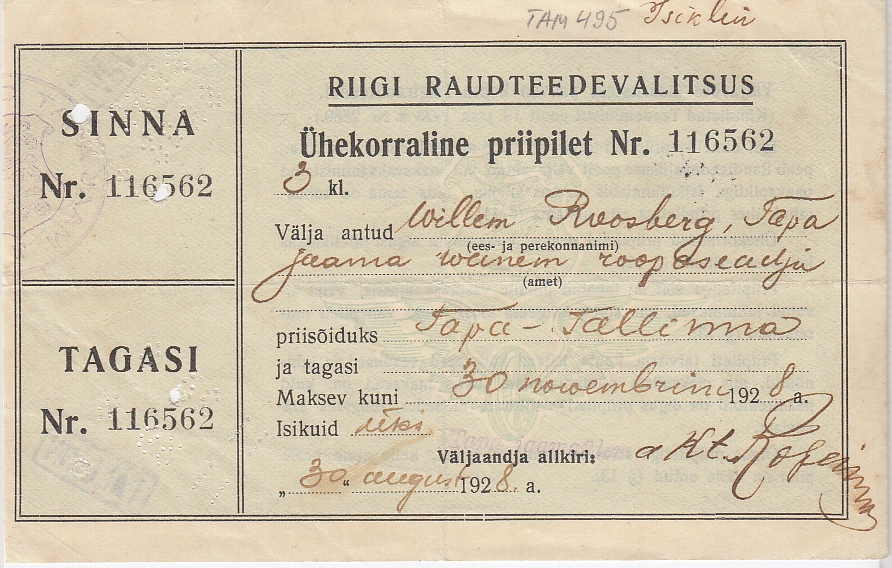 TAM 495 Isiklin
SINNA
Nr. 116562
TAGASI
Nr. 116562
RIIGI RAUDTEEDEVALITSUS
Ühekorraline priipilet Nr. 116562
3 kl.
Välja antud Willem Roosberg, Tapa
(ees- ja perekonnanimi)
jaama wanem rööpaseadja
(amet)
priisõiduks Tapa - Tallinna
ja tagasi
Maksev kuni 30 nowembrini 1928 a.
Isikuid üks
Tapa jaamaülem
Väljaandja allkiri: a. Kt.
„ 30 “ august 1928. a.